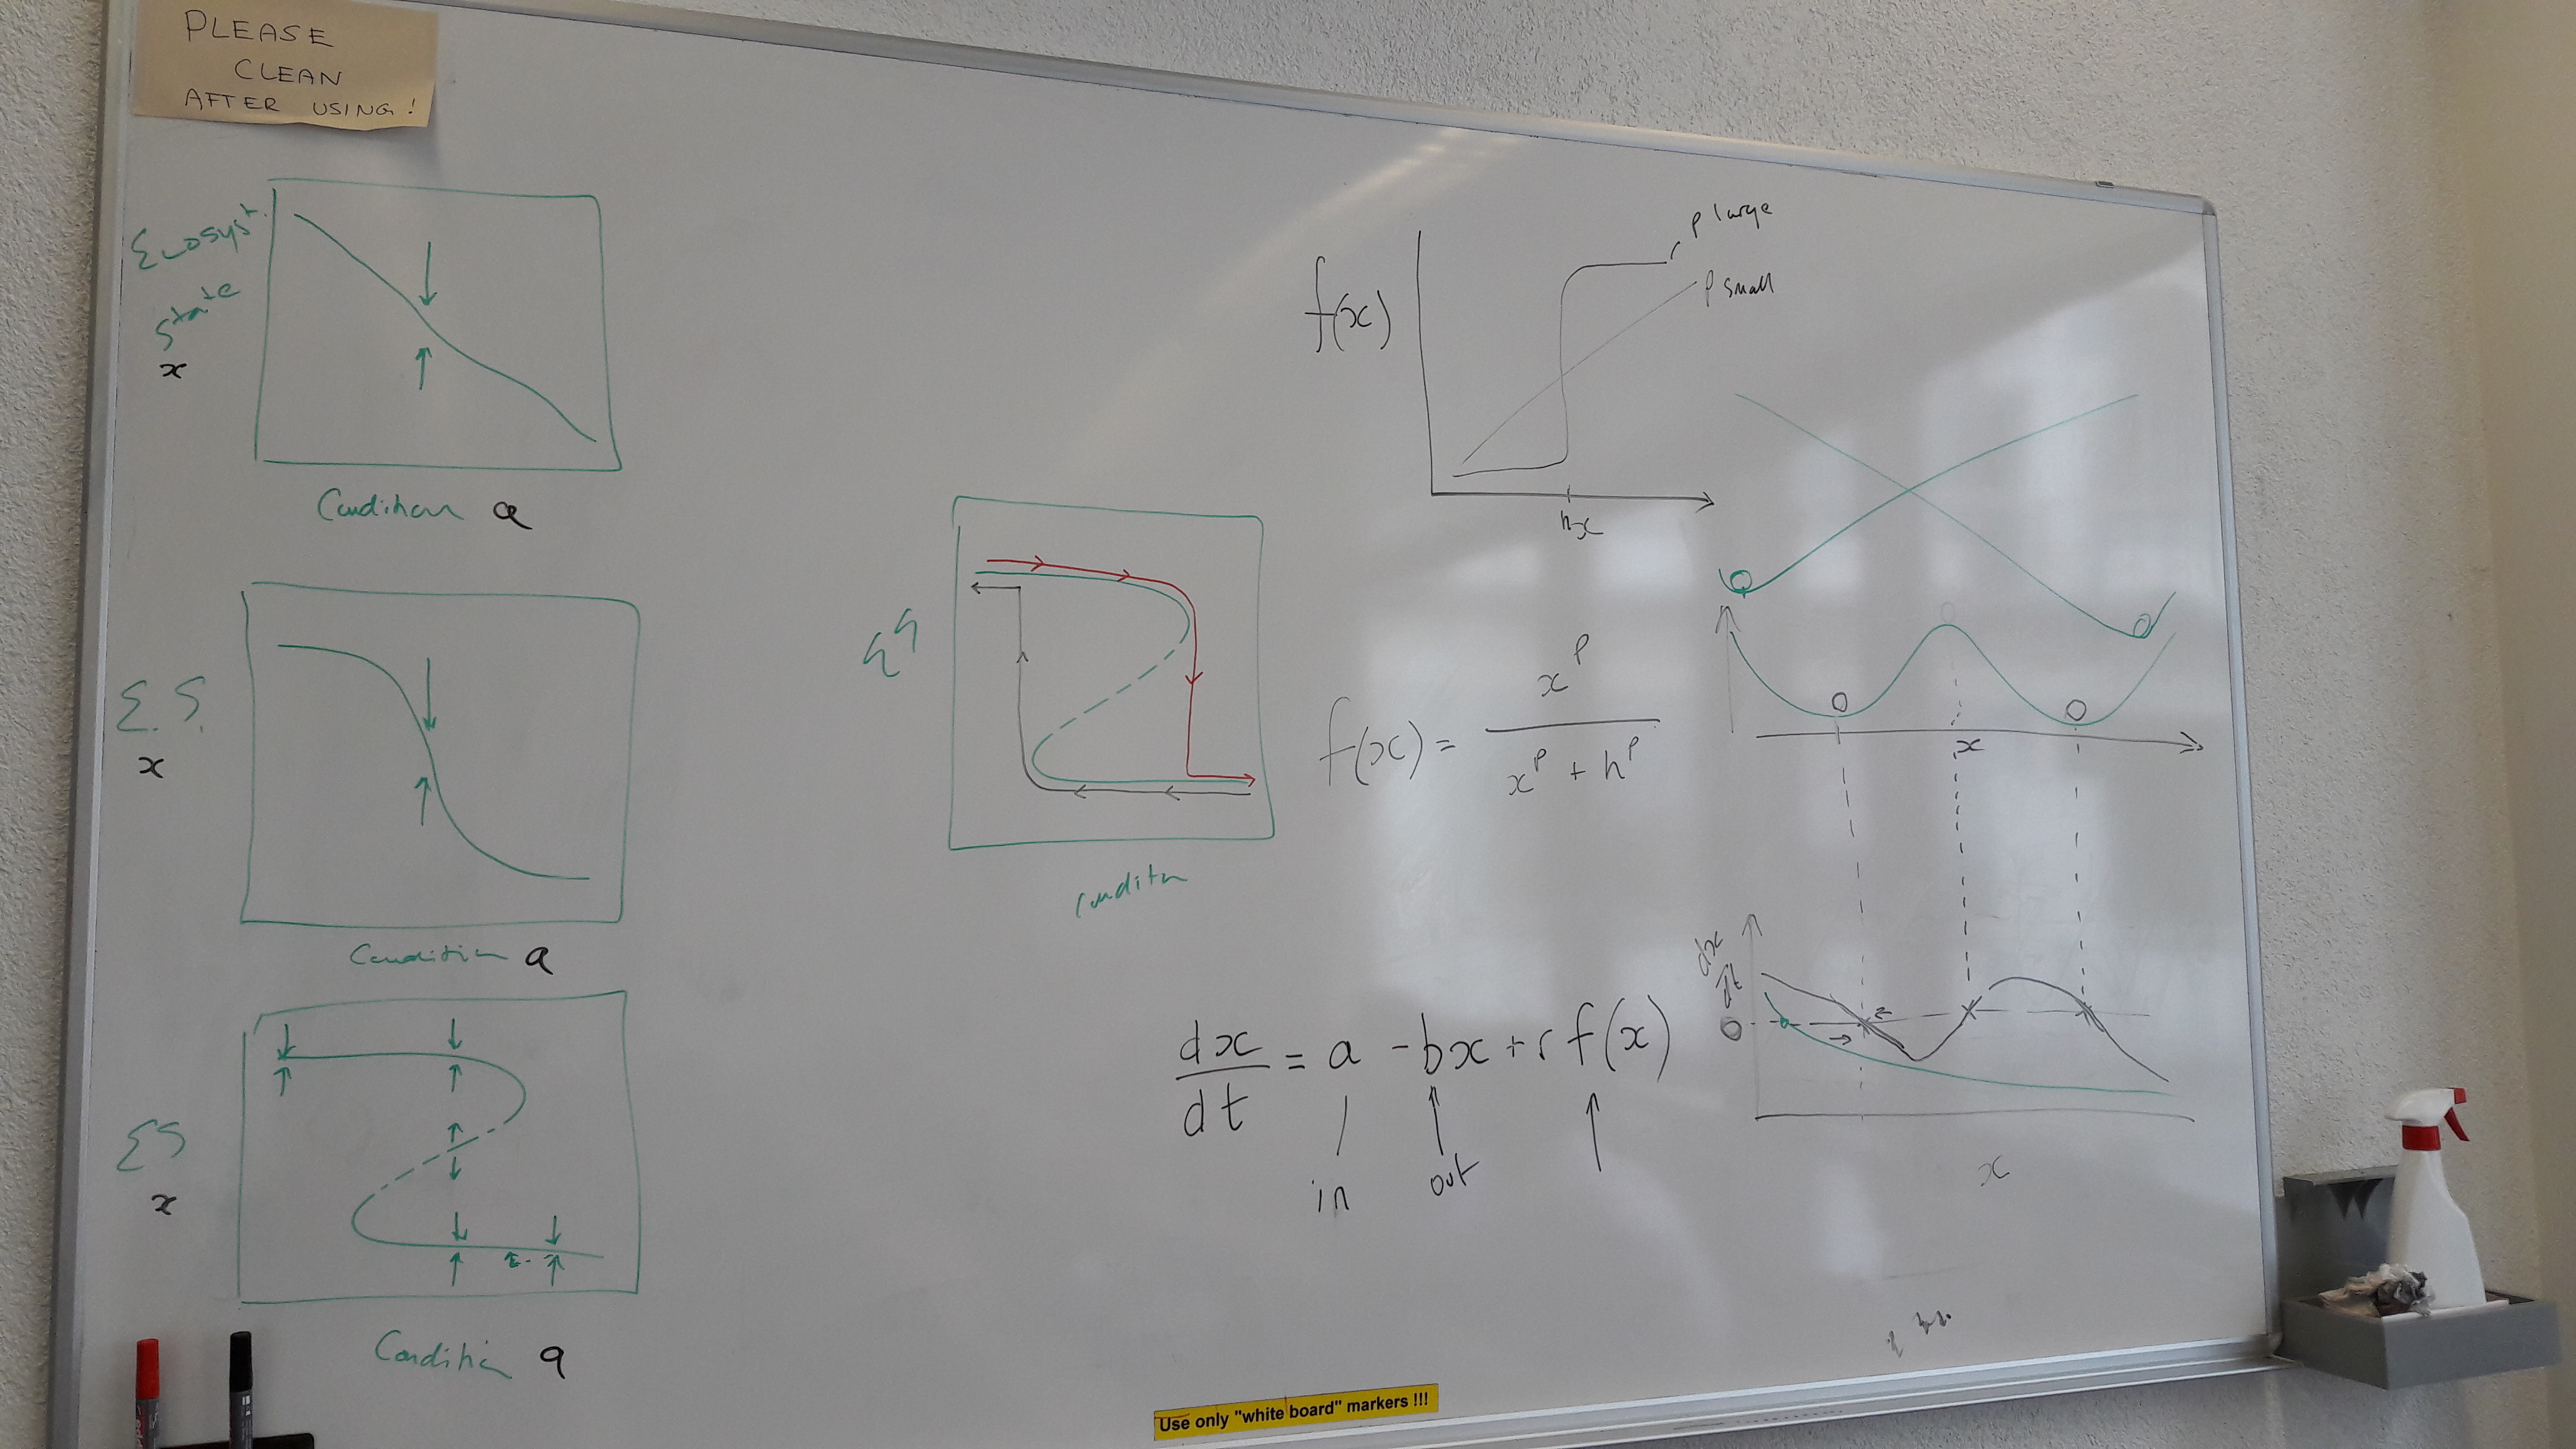 PLEASE
CLEAN
AFTER USING!
Ecosyst.
state
x
Condition a
E.S.
x
Condition a
ES
x
Condition a
ES
Conditn
f(x)
p large
p small
h x
f(x) = x^p / (x^p + h^p)
x
dx/dt = a - bx + r f(x)
in
out
dx/dt
0
x
Use only "white board" markers !!!